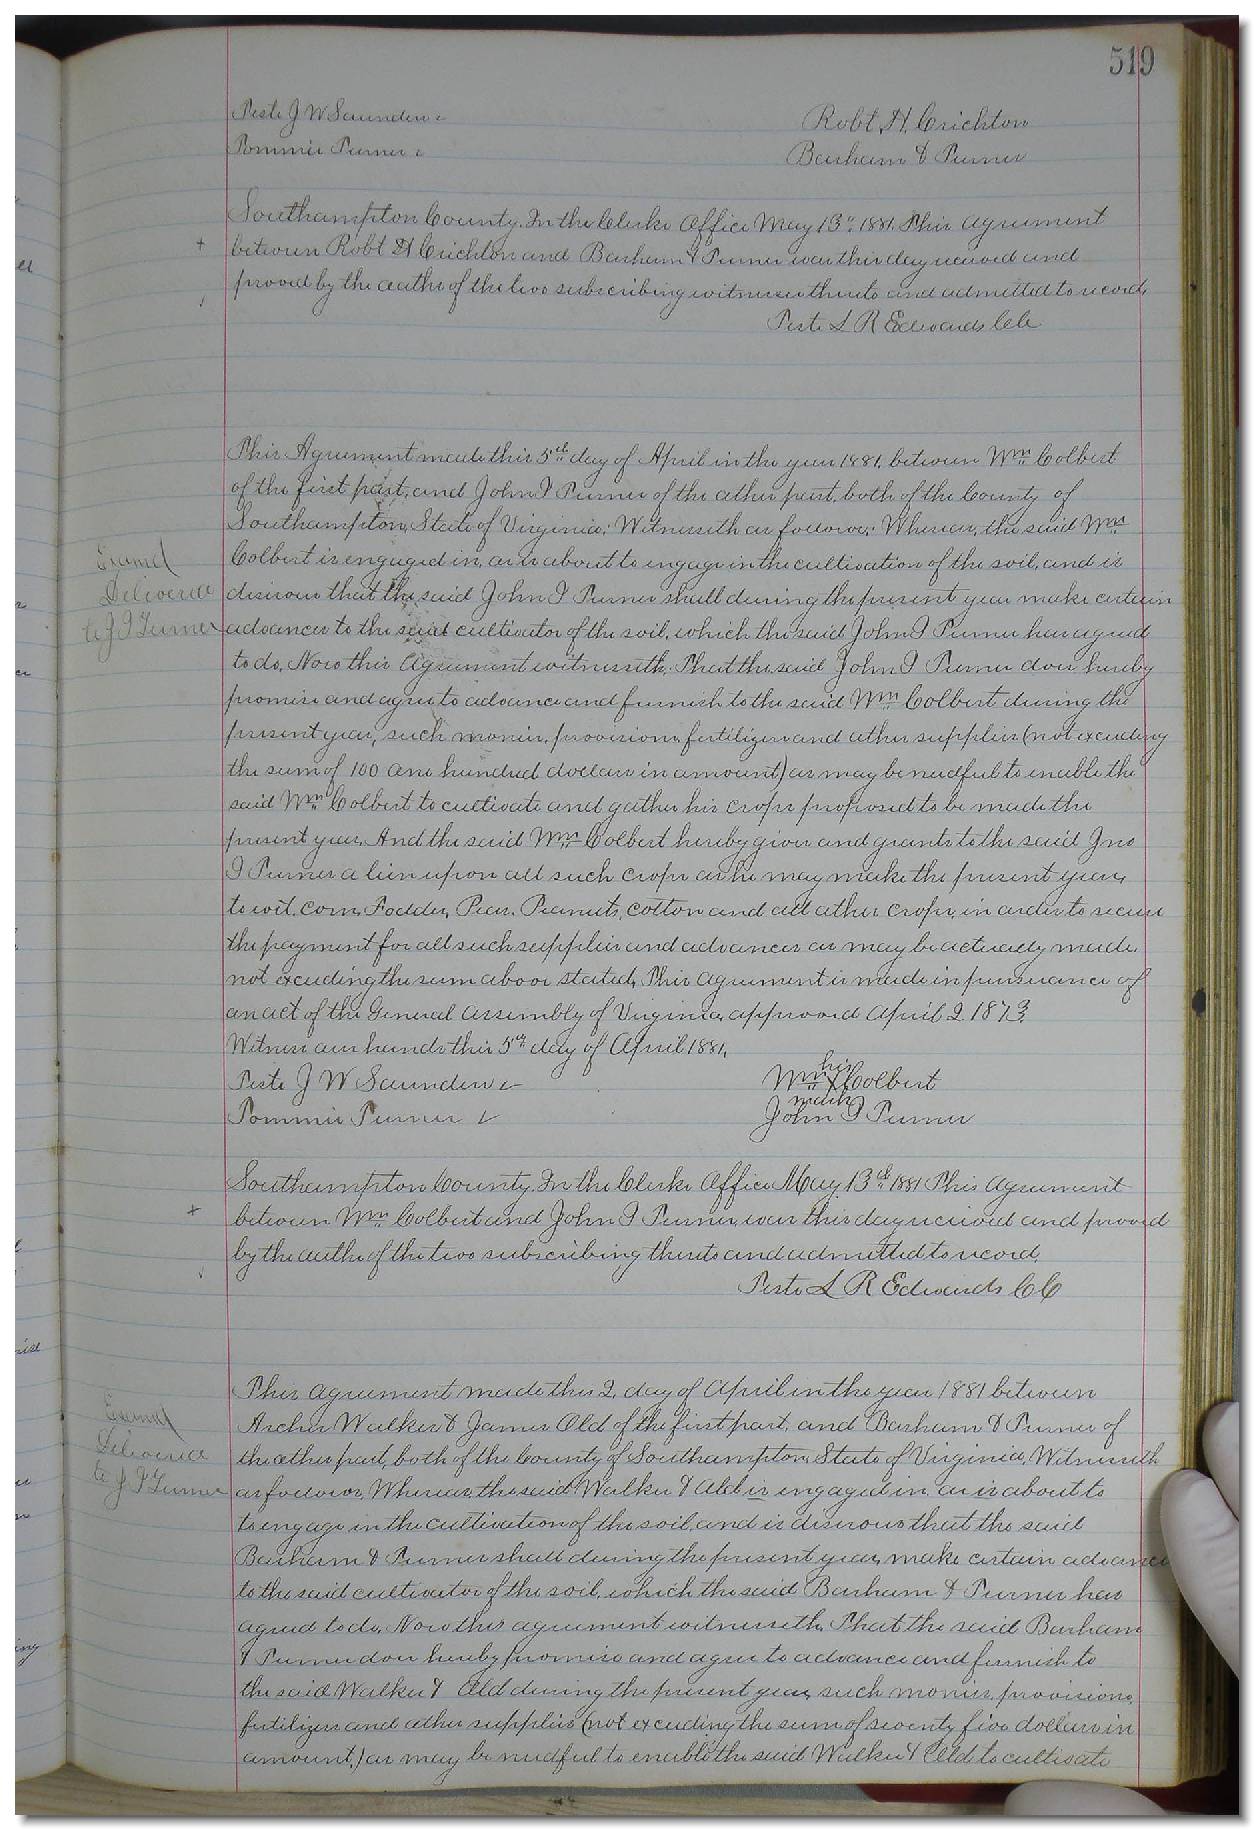 519
Teste J W Saunders
Robt H. Crichton
Tommie Turner
Barham & Turner
Southampton County. In the Clerks Office May 13" 1881. This agreement
between Robt H Crichton and Barham & Turner was this day received and
proved by the oaths of the two subscribing witnesses thereto and admitted to record,
Teste L R Edwards Clk
This Agreement made this 5th day of April in the year 1881, between Wm Colbert
of the first part, and John I Turner of the other part, both of the County of
Southampton, State of Virginia; Witnesseth as follows; Whereas, the said Wm
Colbert is engaged in, or is about to engage in the cultivation of the soil, and is
desirous that the said John I Turner shall during the present year make certain
advances to the said cultivator of the soil, which the said John I Turner has agreed
to do, Now this Agreement witnesseth, That the said John I Turner does hereby
promise and agree to advance and furnish to the said Wm Colbert during the
present year, such monies, provisions, fertilizers and other supplies (not exceeding
the sum of 100 one hundred dollars in amount) as may be needful to enable the
said Wm Colbert to cultivate and gather his crops proposed to be made the
present year, And the said Wm Colbert hereby gives and grants to the said Jno
I Turner a lien upon all such crops as he may make the present year,
to wit, corn, Fodder, Peas, Peanuts, cotton and all other crops, in order to secure
the payment for all such supplies and advances as may be actually made,
not exceeding the sum above stated, This Agreement is made in pursuance of
an act of the General Assembly of Virginia, approved April 2. 1873.
Witness our hands this 5th day of April 1881,
Teste J W Saunders
Wm his X mark Colbert
Tommie Turner
John I Turner
Examd
Delivered
to J I Turner
Southampton County. In the Clerks Office May 13th 1881 This Agreement
between Wm Colbert and John I Turner, was this day received and proved
by the oaths of the two subscribing thereto and admitted to record,
Teste L R Edwards CC
This agreement made this 2, day of April in the year 1881 between
Archer Walker & James Old of the first part, and Barham & Turner of
the other part, both of the County of Southampton, State of Virginia, Witnesseth
as follows, Whereas, the said Walker & Old is engaged in, or is about to
to engage in the cultivation of the soil, and is desirous that the said
Barham & Turner shall during the present year, make certain advances
to the said cultivator of the soil, which the said Barham & Turner has
agreed to do, Now this agreement witnesseth, That the said Barham
& Turner does hereby promise and agree to advance and furnish to
the said Walker & Old during the present year, such monies, provisions,
fertilizers and other supplies (not exceeding the sum of seventy five dollars in
amount,) as may be needful to enable the said Walker & Old to cultivate
Examd
Delivered
to J I Turner